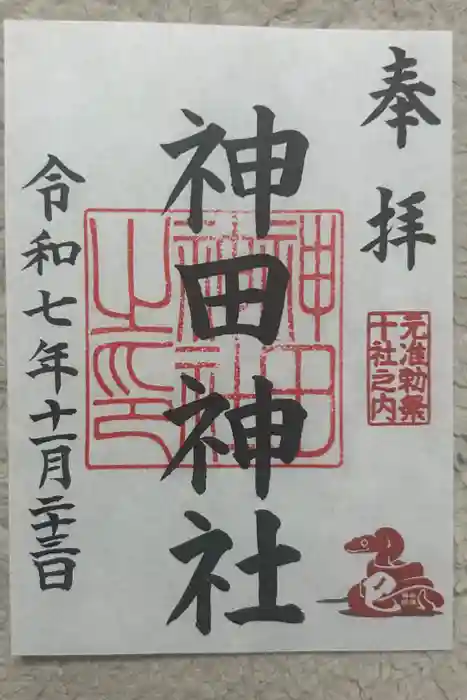 奉拝
元准勅祭
十社之内
神田神社
神田
神社
之印
巳
令和七年十一月二十三日